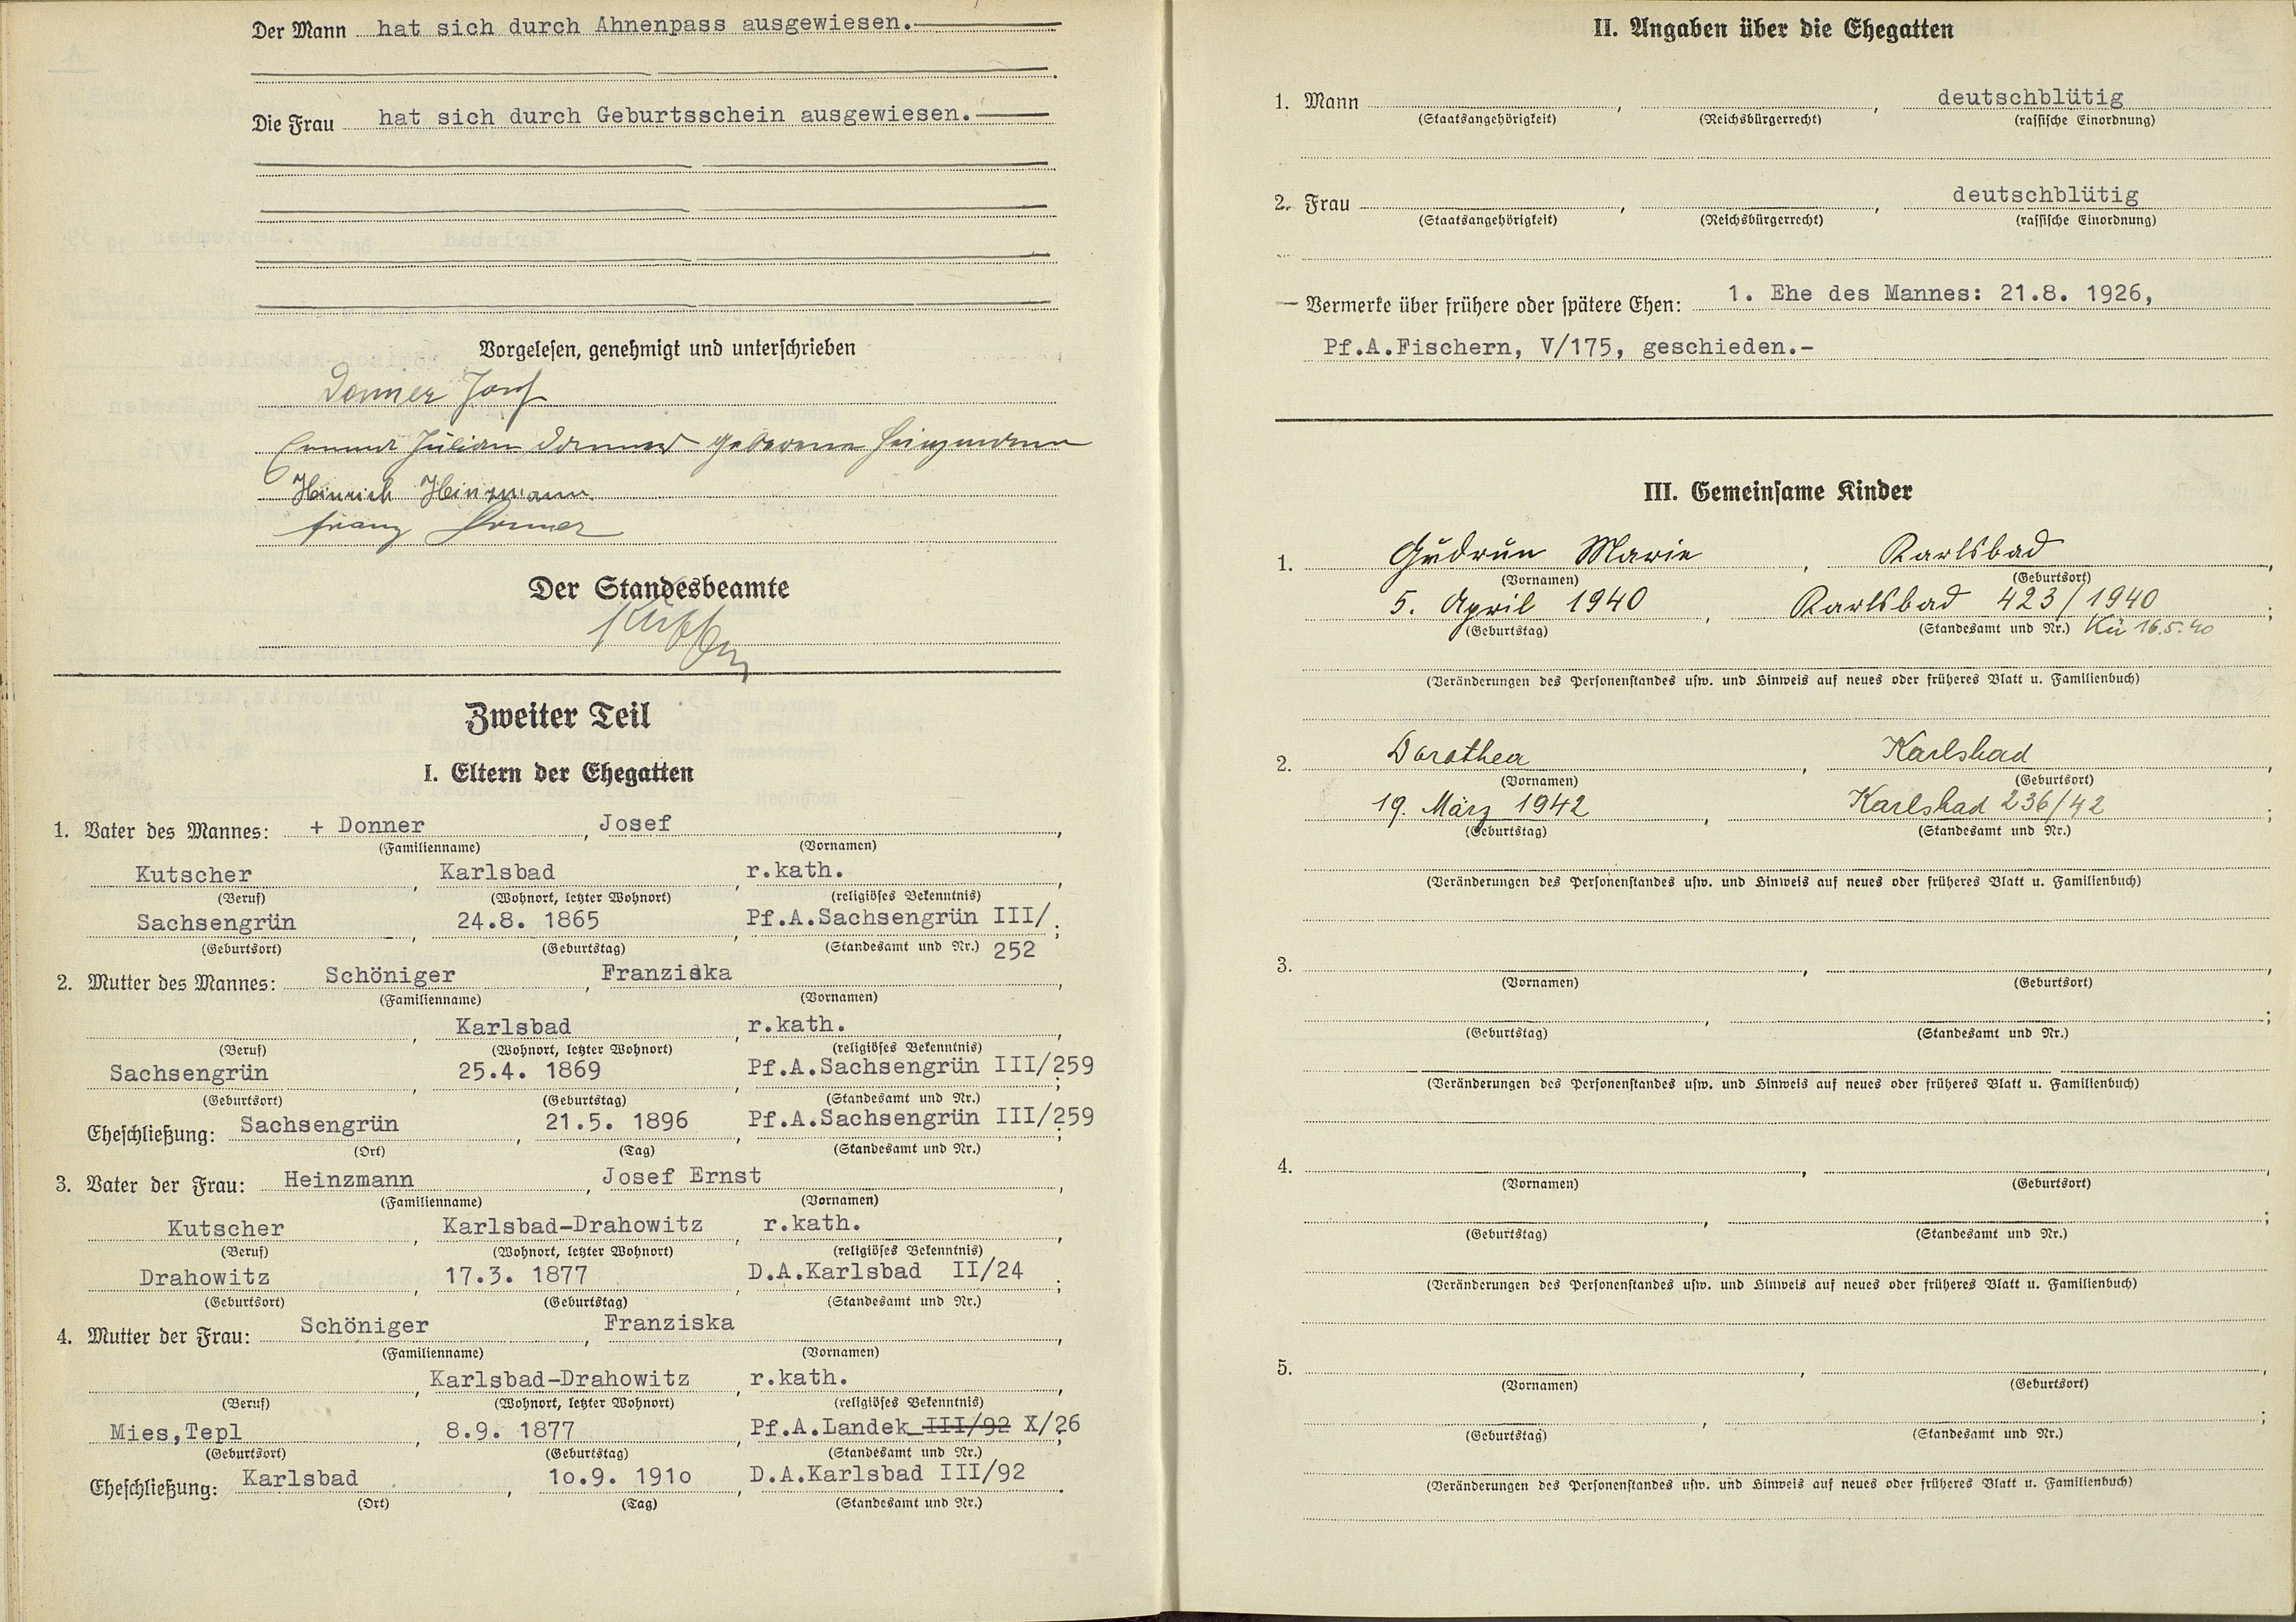 Der Mann hat sich durch Ahnenpass ausgewiesen.
Die Frau hat sich durch Geburtsschein ausgewiesen.
Vorgelesen, genehmigt und unterschrieben
Donner Josef
Donner geborene Heinzmann
Heinrich Heinzmann
Franz Donner
Der Standesbeamte
Zweiter Teil
I. Eltern der Ehegatten
1. Vater des Mannes: + Donner, Josef,
(Familienname) (Vornamen)
Kutscher, Karlsbad, r.kath.,
(Beruf) (Wohnort, letzter Wohnort) (religiöses Bekenntnis)
Sachsengrün, 24.8. 1865, Pf.A.Sachsengrün III/;
(Geburtsort) (Geburtstag) (Standesamt und Nr.) 252
2. Mutter des Mannes: Schöniger, Franziska,
(Familienname) (Vornamen)
, Karlsbad, r.kath.,
(Beruf) (Wohnort, letzter Wohnort) (religiöses Bekenntnis)
Sachsengrün, 25.4. 1869, Pf.A.Sachsengrün III/259;
(Geburtsort) (Geburtstag) (Standesamt und Nr.)
Eheschließung: Sachsengrün, 21.5. 1896, Pf.A.Sachsengrün III/259;
(Ort) (Tag) (Standesamt und Nr.)
3. Vater der Frau: Heinzmann, Josef Ernst,
(Familienname) (Vornamen)
Kutscher, Karlsbad-Drahowitz, r.kath.,
(Beruf) (Wohnort, letzter Wohnort) (religiöses Bekenntnis)
Drahowitz, 17.3. 1877, D.A.Karlsbad II/24;
(Geburtsort) (Geburtstag) (Standesamt und Nr.)
4. Mutter der Frau: Schöniger, Franziska,
(Familienname) (Vornamen)
, Karlsbad-Drahowitz, r.kath.,
(Beruf) (Wohnort, letzter Wohnort) (religiöses Bekenntnis)
Mies,Tepl, 8.9. 1877, Pf.A.Landek III/92 X/26;
(Geburtsort) (Geburtstag) (Standesamt und Nr.)
Eheschließung: Karlsbad, 1o.9. 191o, D.A.Karlsbad III/92.
(Ort) (Tag) (Standesamt und Nr.)
II. Angaben über die Ehegatten
1. Mann , , deutschblütig
(Staatsangehörigkeit) (Reichsbürgerrecht) (rassische Einordnung)
2. Frau , , deutschblütig
(Staatsangehörigkeit) (Reichsbürgerrecht) (rassische Einordnung)
— Vermerke über frühere oder spätere Ehen: 1. Ehe des Mannes: 21.8. 1926,
Pf.A.Fischern, V/175, geschieden.-
III. Gemeinsame Kinder
1. Gudrun Marie, Karlsbad,
(Vornamen) (Geburtsort)
5. April 1940, Karlsbad 423/1940;
(Geburtstag) (Standesamt und Nr.) Kü 16.5.40
(Veränderungen des Personenstandes usw. und Hinweis auf neues oder früheres Blatt u. Familienbuch)
2. Dorothea, Karlsbad,
(Vornamen) (Geburtsort)
19. März 1942, Karlsbad 236/42;
(Geburtstag) (Standesamt und Nr.)
(Veränderungen des Personenstandes usw. und Hinweis auf neues oder früheres Blatt u. Familienbuch)
3. , ,
(Vornamen) (Geburtsort)
, ;
(Geburtstag) (Standesamt und Nr.)
(Veränderungen des Personenstandes usw. und Hinweis auf neues oder früheres Blatt u. Familienbuch)
4. , ,
(Vornamen) (Geburtsort)
, ;
(Geburtstag) (Standesamt und Nr.)
(Veränderungen des Personenstandes usw. und Hinweis auf neues oder früheres Blatt u. Familienbuch)
5. , ,
(Vornamen) (Geburtsort)
, ;
(Geburtstag) (Standesamt und Nr.)
(Veränderungen des Personenstandes usw. und Hinweis auf neues oder früheres Blatt u. Familienbuch)